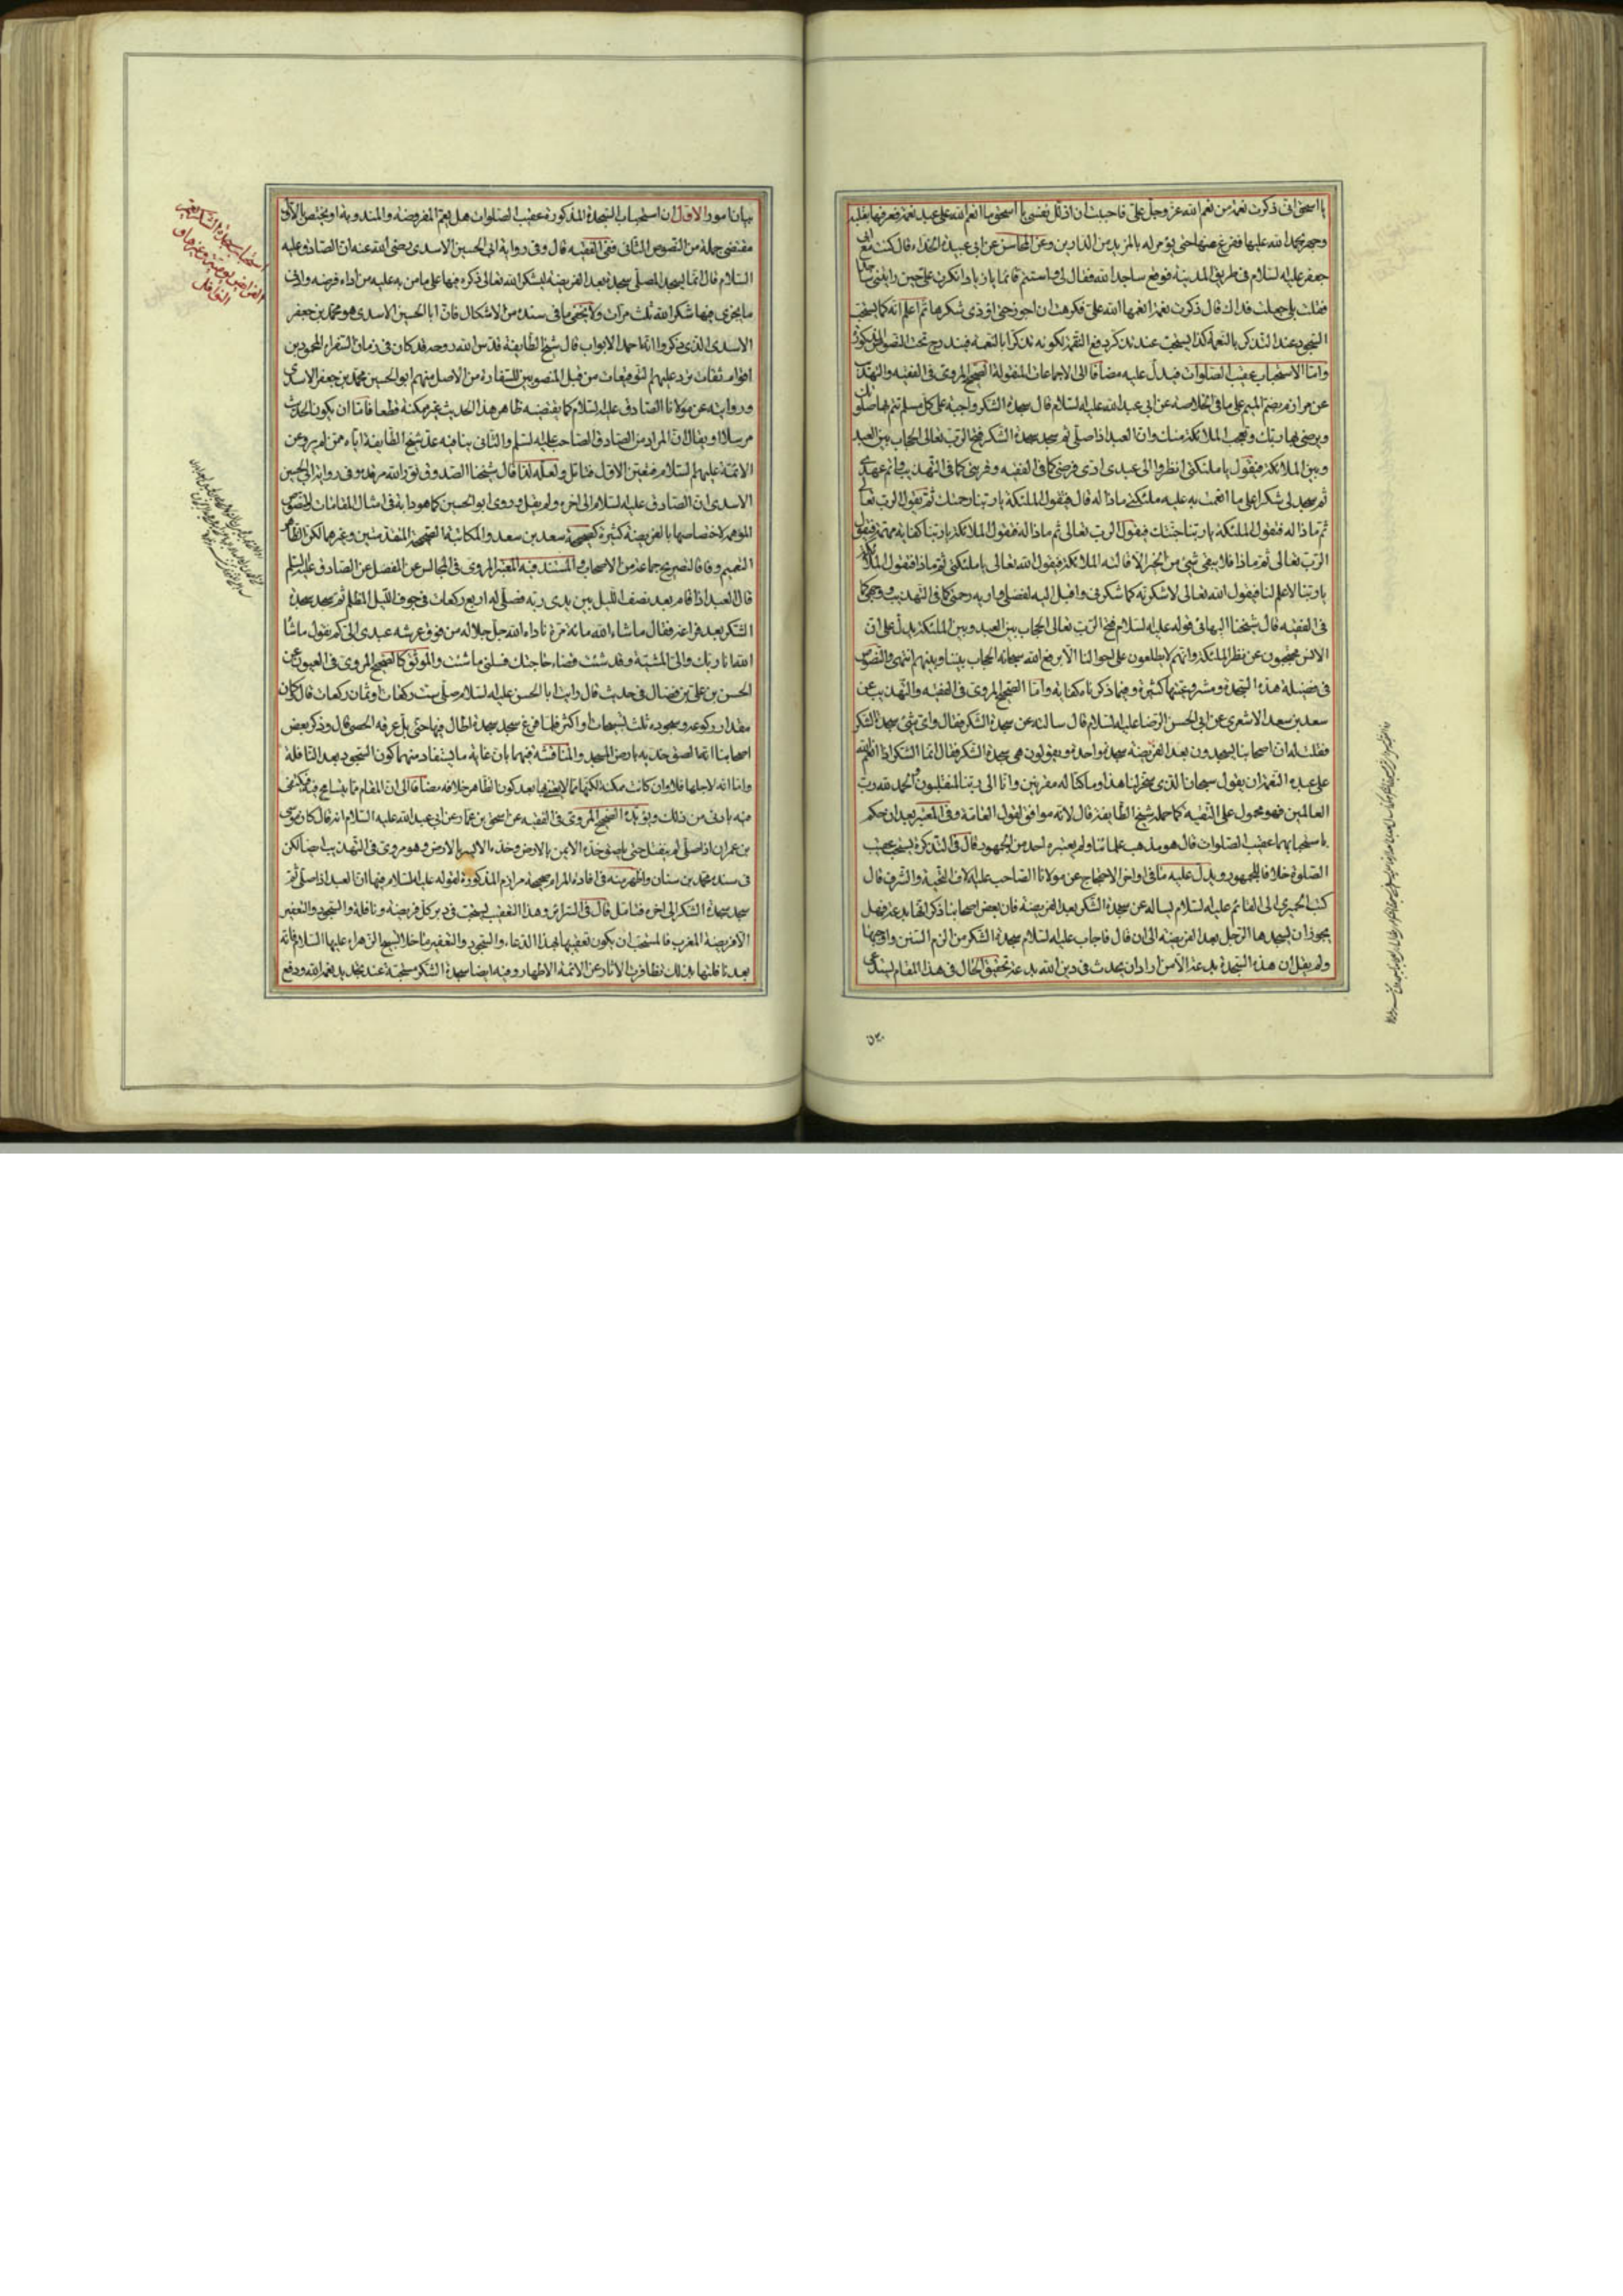 يا اسحق انى ذكرت نعمة من نعم الله عز وجل على فاحببت ان اذلل نفسى يا اسحق ما انعم الله على عبد نعمة فعرفها بقلبه
وجهر بحمد الله عليها ففرغ منها حتى يؤمر له بالمزيد من الدارين وعن المحاسن عن ابى عبيدة الحذاء قال كنت مع ابى
جعفر عليه السلام فى طريق المدينة فوقع ساجدا لله فقال لى واستتم قائما يا زياد انكرت على حين رايتنى ساجدا
فقلت بلى جعلت فداك قال ذكرت نعمة انعمها الله على فكرهت ان اجوز حتى اؤدى شكرها ثم اعلم انه كما يستحب
السجود عند التذكر بالنعمة كذا يستحب عند تذكر دفع النقمة لكونه تذكرا بالنعمة فيندرج تحت النصوص المذكورة
واما الاستحباب عقيب الصلوات فيدل عليه مضافا الى الاجماعات المنقولة الصحيح المروى فى الفقيه والتهذيب
عن مرازم بضم الميم على ما فى الخلاصة عن ابى عبد الله عليه السلام قال سجدة الشكر واجبة على كل مسلم تتم بها صلوتك
وترضى بها ربك وتعجب الملائكة منك وان العبد اذا صلى ثم سجد سجدة الشكر فتح الرب تعالى الحجاب بين العبد
وبين الملائكة فيقول يا ملئكتى انظروا الى عبدى ادى فرضى كما فى الفقيه وقربتى كما فى التهذيب واتم عهدى
ثم سجد لى شكرا على ما انعمت به عليه ملئكتى ماذا له قال فيقول الملئكة يا ربنا رحمتك ثم يقول الرب تعالى
ثم ماذا له فيقول الملئكة يا ربنا جنتك فيقول الرب تعالى ثم ماذا له فيقول الملائكة يا ربنا كفاية مهمته فيقول
الرب تعالى ثم ماذا فلا يبقى شئ من الخير الا قالته الملائكة فيقول الله تعالى يا ملئكتى ثم ماذا فيقول الملائكة
يا ربنا لا علم لنا فيقول الله تعالى لاشكرنه كما شكرنى واقبل اليه بفضلى واريه رحمتى كما فى التهذيب ووجهى كما
فى الفقيه قال شيخنا البهائى قوله عليه السلام فتح الرب تعالى الحجاب بين العبد وبين الملئكة يدل على ان
الانس محجوبون عن نظر الملئكة وانهم لا يطلعون على احوالنا الا برفع الله سبحانه الحجاب بيننا وبينهم انتهى والنصوص
فى فضيلة هذه السجدة ومشروعيتها كثيرة وفيما ذكرناه كفاية واما الصحيح المروى فى الفقيه والتهذيب عن
سعد بن سعد الاشعرى عن ابى الحسن الرضا عليه السلام قال سالته عن سجدة الشكر فقال واى شئ سجدة الشكر
فقلت له ان اصحابنا يسجدون بعد الفريضة سجدة واحدة ويقولون هى سجدة الشكر فقال انما الشكر اذا انعم الله
على عبده النعمة ان يقول سبحان الذى سخر لنا هذا وما كنا له مقرنين وانا الى ربنا لمنقلبون والحمد لله رب
العالمين فهو محمول على التقية كما حمله شيخ الطايفة قال لانه موافق لقول العامة وفى المعتبر بعد ان حكم
باستحبابهما عقيب الصلوات قال هو مذهب علمائنا ولم يعتبره احد من الجمهور وقال فى التذكرة يستحب عقيب
الصلوة خلافا للجمهور ويدل عليه ما فى اواخر الاحتجاج عن مولانا الصاحب عليه الاف التحية والشرف قال
كتب الحميرى الى القائم عليه السلام يساله عن سجدة الشكر بعد الفريضة فان بعض اصحابنا ذكر انها بدعة فهل
يجوز ان يسجدها الرجل بعد الفريضة الى ان قال فاجاب عليه السلام سجدة الشكر من الزم السنن واوجبها
ولم يقل ان هذه السجدة بدعة الا من اراد ان يحدث فى دين الله بدعة تحقيق الحال فى هذا المقام يستدعى
بيان امور الاول ان استحباب السجدة المذكورة عقيب الصلوات هل يعم المفروضة والمندوبة او يختص بالاولى
مقتضى جملة من النصوص الثانى ففى الفقيه قال وفى رواية ابى الحسين الاسدى رضى الله عنه ان الصادق عليه
السلام قال انما يسجد المصلى سجدة بعد الفريضة ليشكر الله تعالى ذكره فيها على ما من به عليه من اداء فرضه وادنى
ما يجزى فيها شكرا لله ثلث مرات ولا يخفى ما فى سنده من الاشكال فان ابا الحسين الاسدى هو محمد بن جعفر
الاسدى الذى ذكروا انه احد الابواب قال شيخ الطايفة قدس الله روحه قد كان فى زمان السفراء المحمودين
اقوام ثقات ترد عليهم التوقيعات من قبل المنصوبين للسفارة من الاصل منهم ابو الحسين محمد بن جعفر الاسدى
وروايته عن مولانا الصادق عليه السلام كما يقتضيه ظاهر هذا الحديث غير ممكنة قطعا فاما ان يكون الحديث
مرسلا او يقال ان المراد من الصادق الصاحب عليه السلم والثانى ينافيه عد شيخ الطايفة اياه ممن لم يرو عن
الائمة عليهم السلام فتعين الاول فتامل ولعله لذا قال شيخنا الصدوق نور الله مرقده وفى رواية ابى الحسين
الاسدى ان الصادق عليه السلام الى اخره ولم يقل وروى ابو الحسين كما هو دابه فى امثال المقامات والنصوص
الموهمة لاختصاصها بالفريضة كثيرة كصحيحة سعد بن سعد والمكاتبة الصحيحة المتقدمتين وغيرهما لكن الظاهر
التعميم وفاقا لتصريح جماعة من الاصحاب والمستند فيه المعتبر المروى فى المجالس عن المفضل عن الصادق عليه السلم
قال العبد اذا قام بعد نصف الليل بين يدى ربه فصلى له اربع ركعات فى جوف الليل المظلم ثم سجد سجدة
الشكر بعد فراغه فقال ما شاء الله مائة مرة ناداه الله جل جلاله من فوق عرشه عبدى الى كم تقول ما شاء
الله انا ربك والى المشية وقد شئت قضاء حاجتك فسلنى ما شئت والموثق كالصحيح المروى فى العيون عن
الحسن بن على بن فضال فى حديث قال رايت ابا الحسن عليه السلام صلى ست ركعات او ثمان ركعات قال كان
مقدار ركوعه وسجوده ثلث تسبيحات او اكثر فلما فرغ سجد سجدة اطال فيها حتى بل عرقه الحصى قال وذكر بعض
اصحابنا انه الصق خديه بارض المسجد والمناقشة فيهما بان غاية ما يستفاد منهما كون السجود بعد النافلة
واما انه لاجلها فلا وان كانت ممكنة لكنها مما لا يعتنى بها بعد كون الظاهر خلافه مضافا الى ان المقام مما يتسامح فيه فيكتفى
فيه بادنى من ذلك ويؤيده الصحيح المروى فى الفقيه عن اسحق بن عمار عن ابى عبد الله عليه السلام انه قال كان موسى
بن عمران اذا صلى لم ينفتل حتى يلصق خده الايمن بالارض وخده الايسر بالارض وهو مروى فى التهذيب ايضا لكن
فى سنده محمد بن سنان واظهر منه فى افادة المرام صحيحة مرازم المذكورة لقوله عليه السلام فيها ان العبد اذا صلى ثم
سجد سجدة الشكر الى اخره فتامل قال فى السرائر وهذا التعقيب يستحب فى دبر كل فريضة ونافلة والسجود والتعفير
الا فريضة المغرب فالمستحب ان يكون تعقيبها بهذا الدعاء والسجود والتعفير ما خلا تسبيح الزهراء عليها السلام فانه
بعد نافلتها بذلك تظافرت الاثار عن الائمة الاطهار وفيه ايضا سجدة الشكر مستحبة عند تجدد نعم الله ودفع